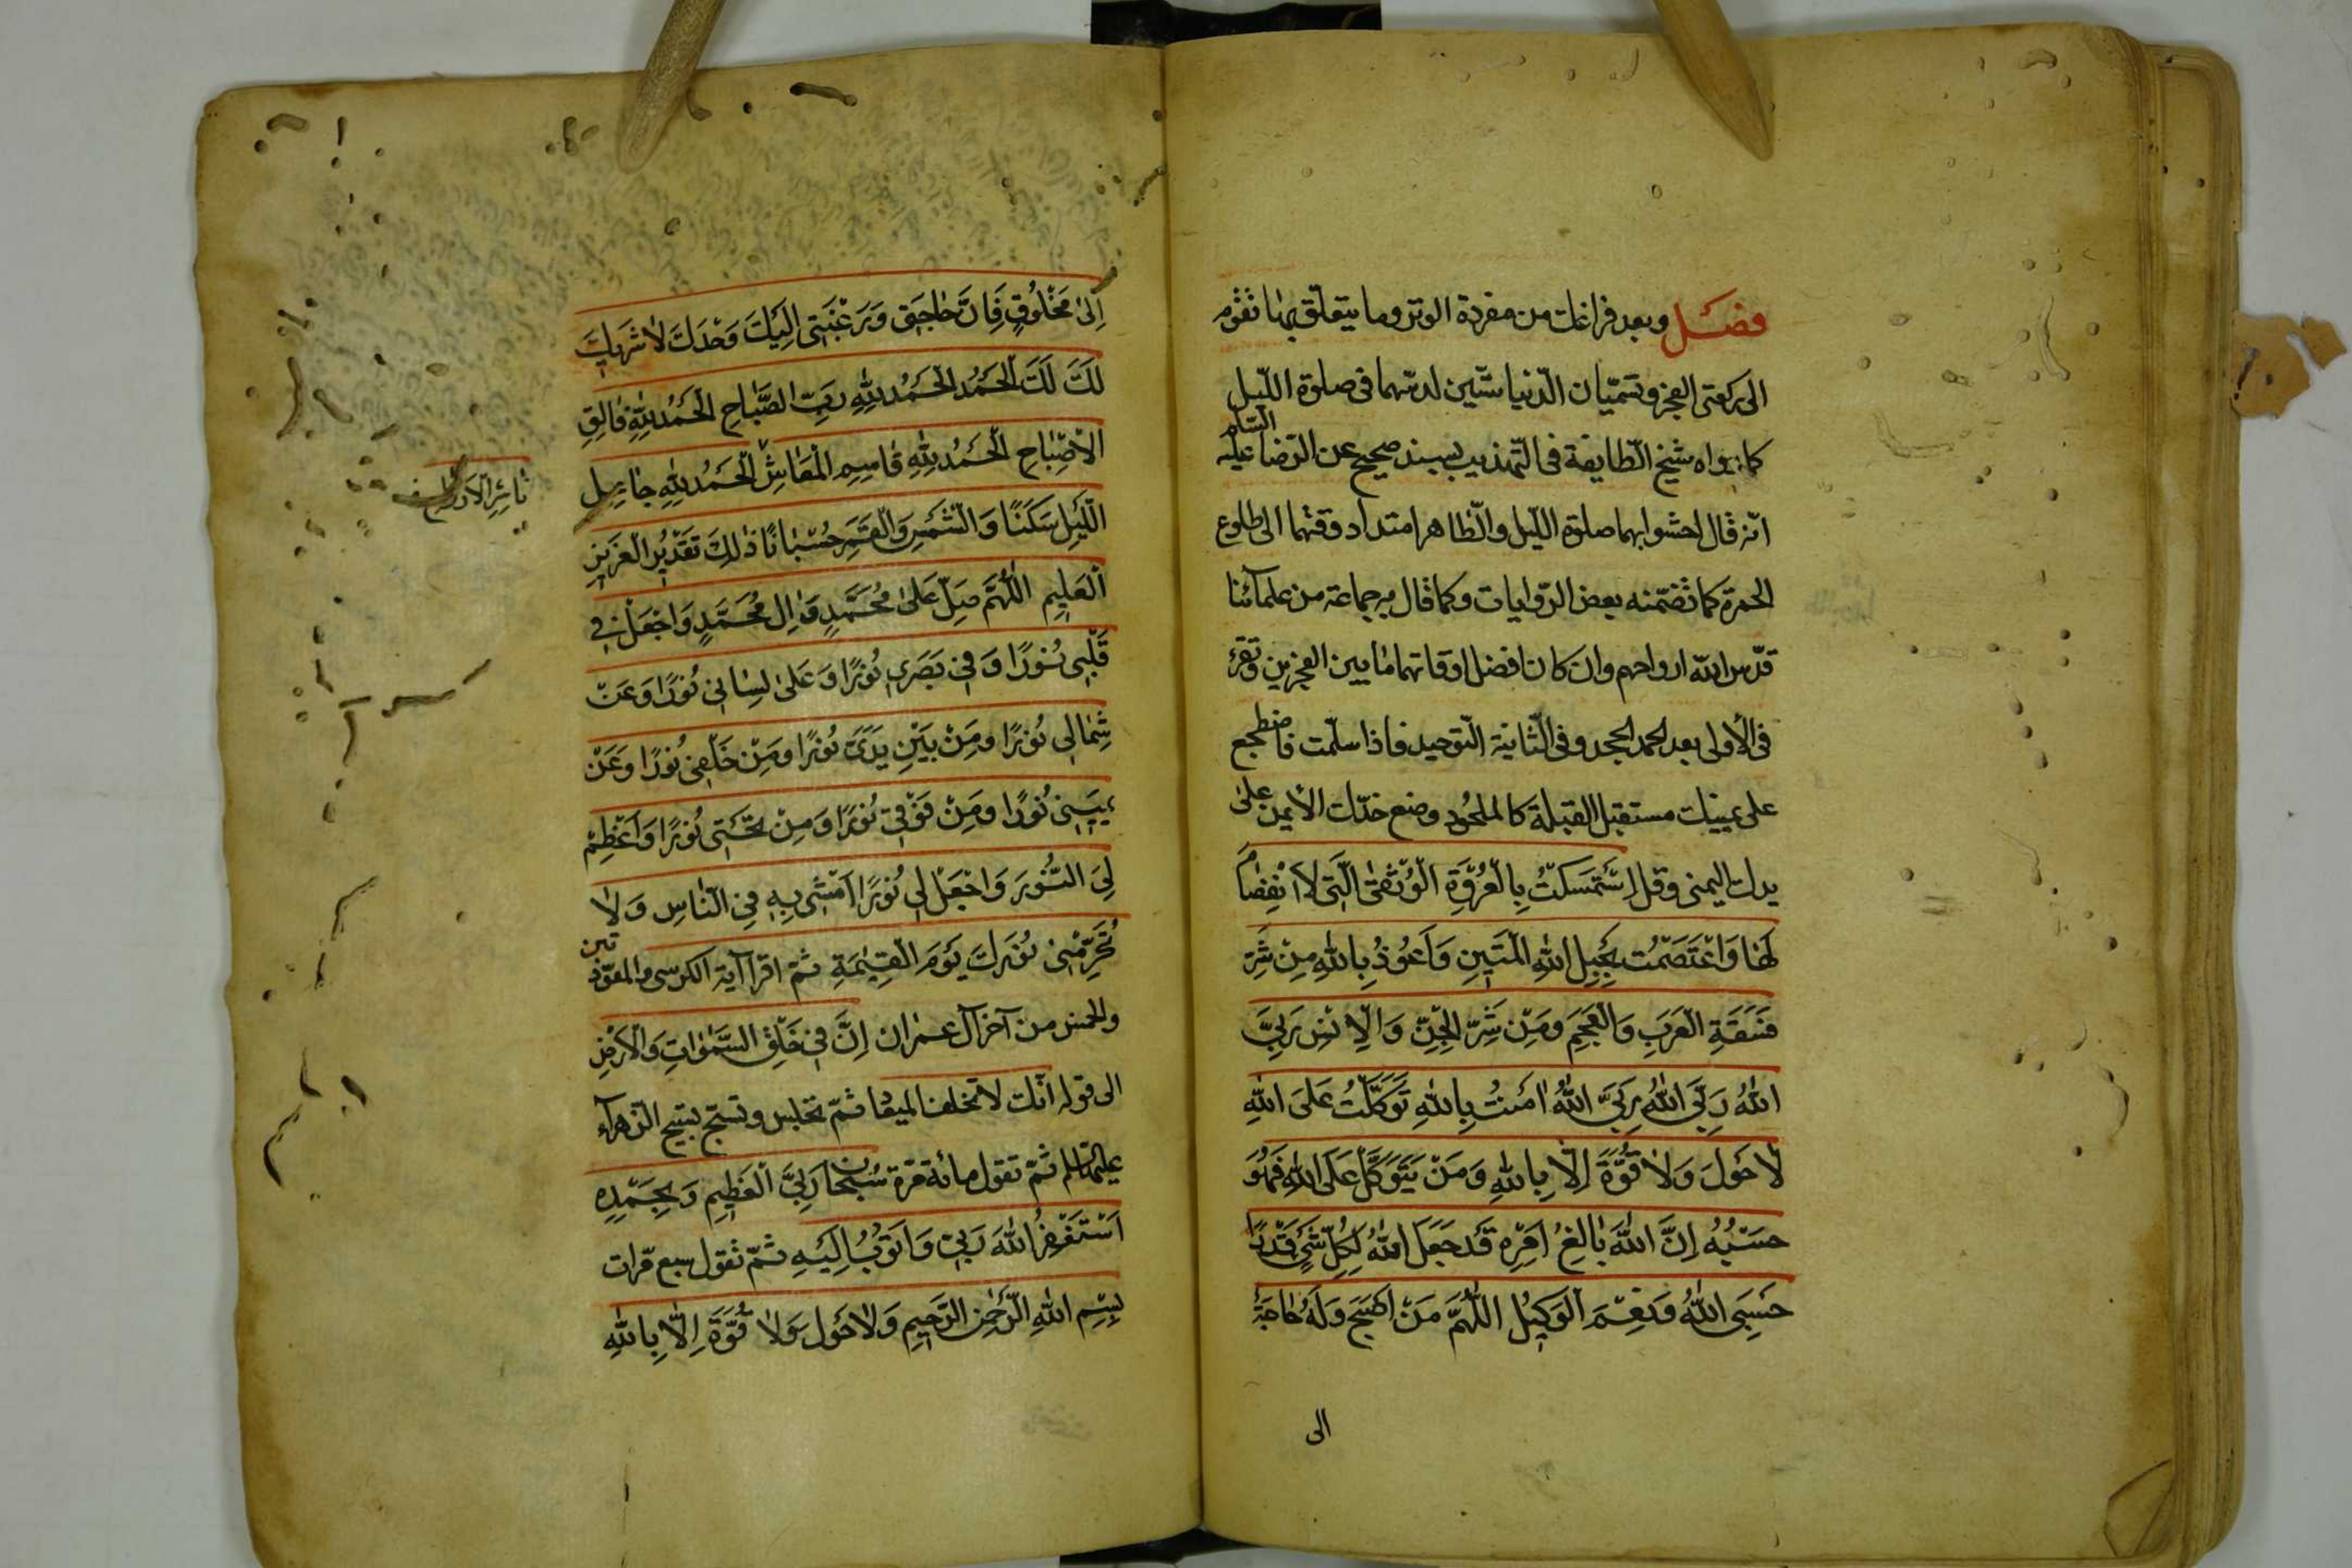 فصل وبعد فراغك من مفردة الوتر وما يتعلّق بها تقوم
الى ركعتى الفجر وتسمّيان الدّسّاستين لدسّهما فى صلوة اللّيل
كما رواه شيخ الطّايفة فى التّهذيب بسند صحيح عن الرّضا عليه السّلم
انّه قال احشوا بهما صلوة اللّيل والظّاهر امتداد وقتهما الى طلوع
الحمرة كما تضمّنه بعض الرّوايات وكما قال به جماعة من علمآئنا
قدّس اللّه ارواحهم وان كان افضل اوقاتهما ما بين الفجرين وتقرء
فى الأولى بعد الحمد الجحد وفى الثّانية التّوحيد فاذا سلّمت فاضطجع
على يمينك مستقبل القبلة كالملحود وضع خدّك الأيمن على
يدك اليمنى وقل اِسْتَمْسَكْتُ بِالْعُرْوَةِ الْوُثْقىٰ الَّتى لَا انْفِصٰامَ
لَهٰا وَاعْتَصَمْتُ بِحَبْلِ اللّٰهِ الْمَتينِ وَاَعُوذُ بِاللّٰهِ مِنْ شَرِّ
فَسَقَةِ الْعَرَبِ وَالْعَجَمِ وَمِنْ شَرِّ الْجِنِّ وَالْاِنْسِ رَبِّىَ
اللّٰهُ رَبِّىَ اللّٰهُ رَبِّىَ اللّٰهُ اٰمَنْتُ بِاللّٰهِ تَوَكَّلْتُ عَلَى اللّٰهِ
لٰا حَوْلَ وَلٰا قُوَّةَ اِلّٰا بِاللّٰهِ وَمَنْ يَتَوَكَّلْ عَلَى اللّٰهِ فَهُوَ
حَسْبُهُ اِنَّ اللّٰهَ بٰالِغُ اَمْرِهِ قَدْ جَعَلَ اللّٰهُ لِكُلِّ شَىْءٍ قَدْرًا
حَسْبِىَ اللّٰهُ وَنِعْمَ الْوَكيلُ اللّٰهُمَّ مَنْ اَصْبَحَ وَلَهُ حٰاجَةٌ
الى
اِلىٰ مَخْلُوقٍ فَاِنَّ حٰاجَتى وَرَغْبَتى اِلَيْكَ وَحْدَكَ لٰا شَريكَ
لَكَ لَكَ الْحَمْدُ الْحَمْدُ لِلّٰهِ رَبِّ الصَّبٰاحِ الْحَمْدُ لِلّٰهِ فٰالِقِ
الْاَصْبٰاحِ الْحَمْدُ لِلّٰهِ قٰاسِمِ الْمَعٰاشِ الْحَمْدُ لِلّٰهِ جٰاعِلِ
ناشر الارواح
اللَّيْلِ سَكَنًا وَالشَّمْسِ وَالْقَمَرِ حُسْبٰانًا ذٰلِكَ تَقْديرُ الْعَزيزِ
الْعَليمِ اللّٰهُمَّ صَلِّ عَلىٰ مُحَمَّدٍ وَاٰلِ مُحَمَّدٍ وَاجْعَلْ فى
قَلْبى نُورًا وَفى بَصَرى نُورًا وَعَلىٰ لِسٰانى نُورًا وَعَنْ
شِمٰالى نُورًا وَمِنْ بَيْنِ يَدَىَّ نُورًا وَمِنْ خَلْفى نُورًا وَعَنْ
يَمينى نُورًا وَمِنْ فَوْقى نُورًا وَمِنْ تَحْتى نُورًا وَاَعْظِمْ
لِىَ النُّورَ وَاجْعَلْ لى نُورًا اَمْشى بِهِ فِى النّٰاسِ وَلٰا
تُحَرِّمْنى نُورَكَ يَوْمَ الْقِيٰمَةِ ثمّ اقرأ آية الكرسى والمعوّذتين
والخمس من آخر آل عمران اِنَّ فى خَلْقِ السَّمٰوٰاتِ وَالْاَرْضِ
الى قوله انّك لا تخلف الميعاد ثمّ تجلس وتسبّح تسبيح الزّهرآء
عليها السّلم ثمّ تقول مائة مرّة سُبْحٰانَ رَبِّىَ الْعَظيمِ وَبِحَمْدِهِ
اَسْتَغْفِرُ اللّٰهَ رَبّى وَاَتُوبُ اِلَيْهِ ثمّ تقول سبع مرّات
بِسْمِ اللّٰهِ الرَّحْمٰنِ الرَّحيمِ وَلٰا حَوْلَ وَلٰا قُوَّةَ اِلّٰا بِاللّٰهِ